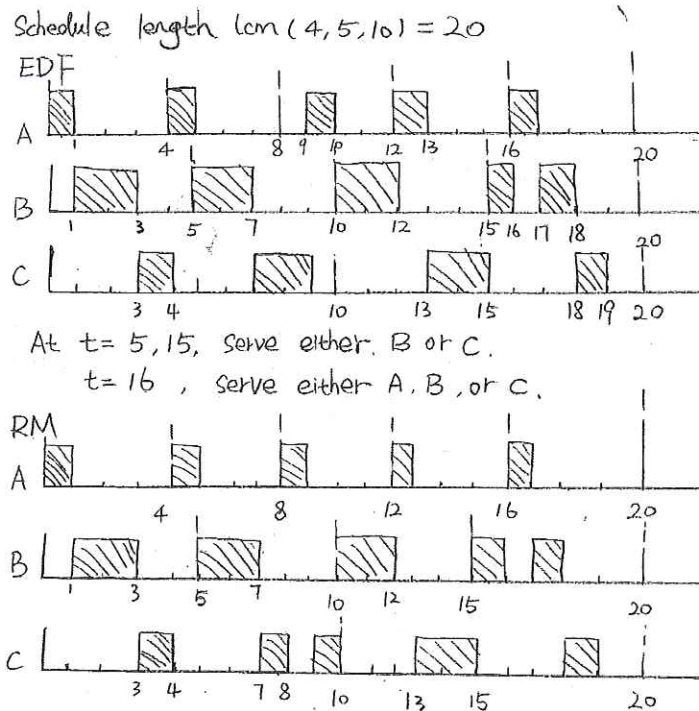 Schedule length lcm (4,5,10) = 20
EDF
A
1 4 5 8 9 10 12 13 16 20
B
1 3 5 7 10 12 15 16 17 18 20
C
3 4 10 13 15 18 19 20
At t= 5,15, serve either. B or C.
t= 16 , serve either A. B, or C.
RM
A
4 8 12 16 20
B
1 3 5 7 10 12 15 20
C
3 4 7 8 10 13 15 20